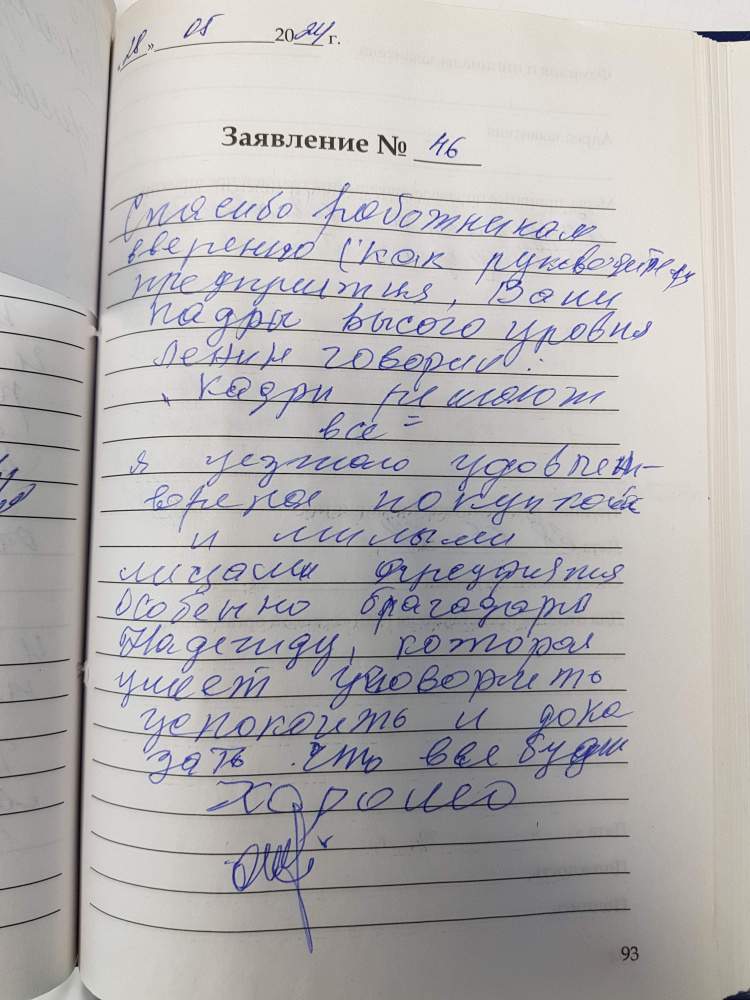 «28» 05 2024 г.
Заявление № 46
Спасибо работникам
вверению (как руководителя
предприятия, Ваши
кадры высого уровня
Ленин говорил:
„Кадры решают
все"
я уезжаю удовлет-
ворена покупкой
и милыми
лицами
Особенно благодарю
Надежду, которая
умеет уговорить
успокоить и дока
зать что все будет
Хорошо
93